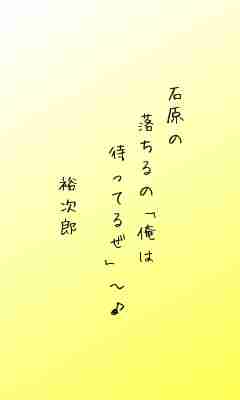 石原の
落ちるの「俺は
待ってるぜ」～♪
裕次郎